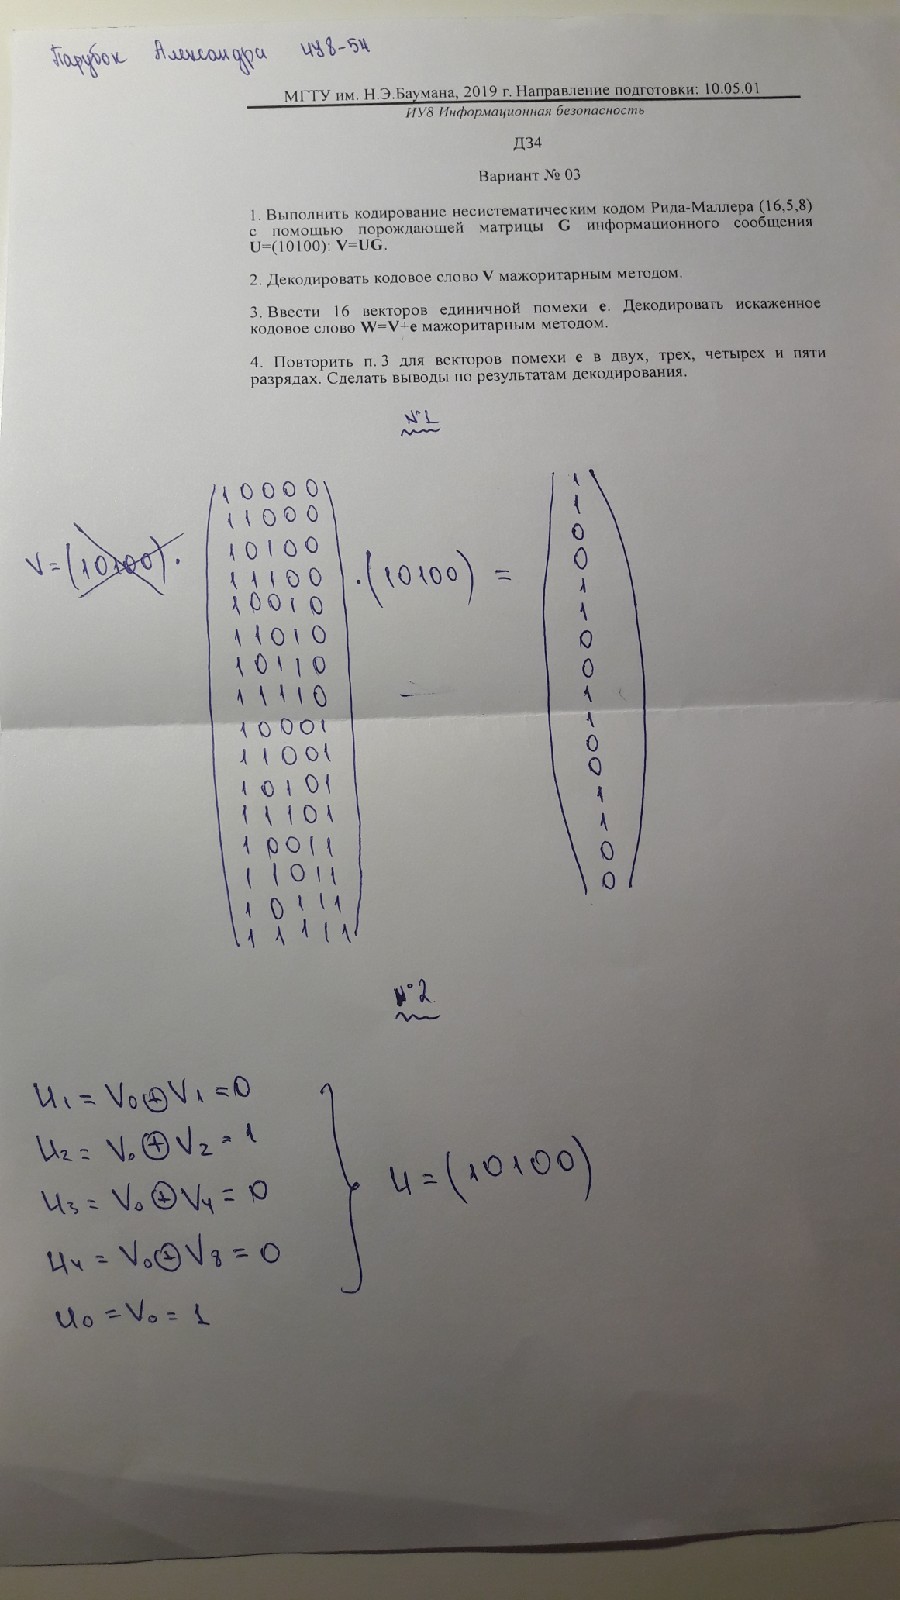 Парубок Александра ИУ8-54
МГТУ им. Н.Э.Баумана, 2019 г. Направление подготовки: 10.05.01
ИУ8 Информационная безопасность
ДЗ4
Вариант № 03
1. Выполнить кодирование несистематическим кодом Рида-Маллера (16,5,8)
с помощью порождающей матрицы G информационного сообщения
U=(10100): V=UG.
2. Декодировать кодовое слово V мажоритарным методом.
3. Ввести 16 векторов единичной помехи e. Декодировать искаженное
кодовое слово W=V+e мажоритарным методом.
4. Повторить п. 3 для векторов помехи e в двух, трех, четырех и пяти
разрядах. Сделать выводы по результатам декодирования.
№1
V=(10100)·
10000
11000
10100
11100
10010
11010
10110
11110
10001
11001
10101
11101
10011
11011
10111
11111
·(10100) =
1
1
0
0
1
1
0
0
1
1
0
0
1
1
0
0
№2
U1 = V0⊕V1 = 0
U2 = V0⊕V2 = 1
U3 = V0⊕V4 = 0
U4 = V0⊕V8 = 0
U0 = V0 = 1
U = (10100)